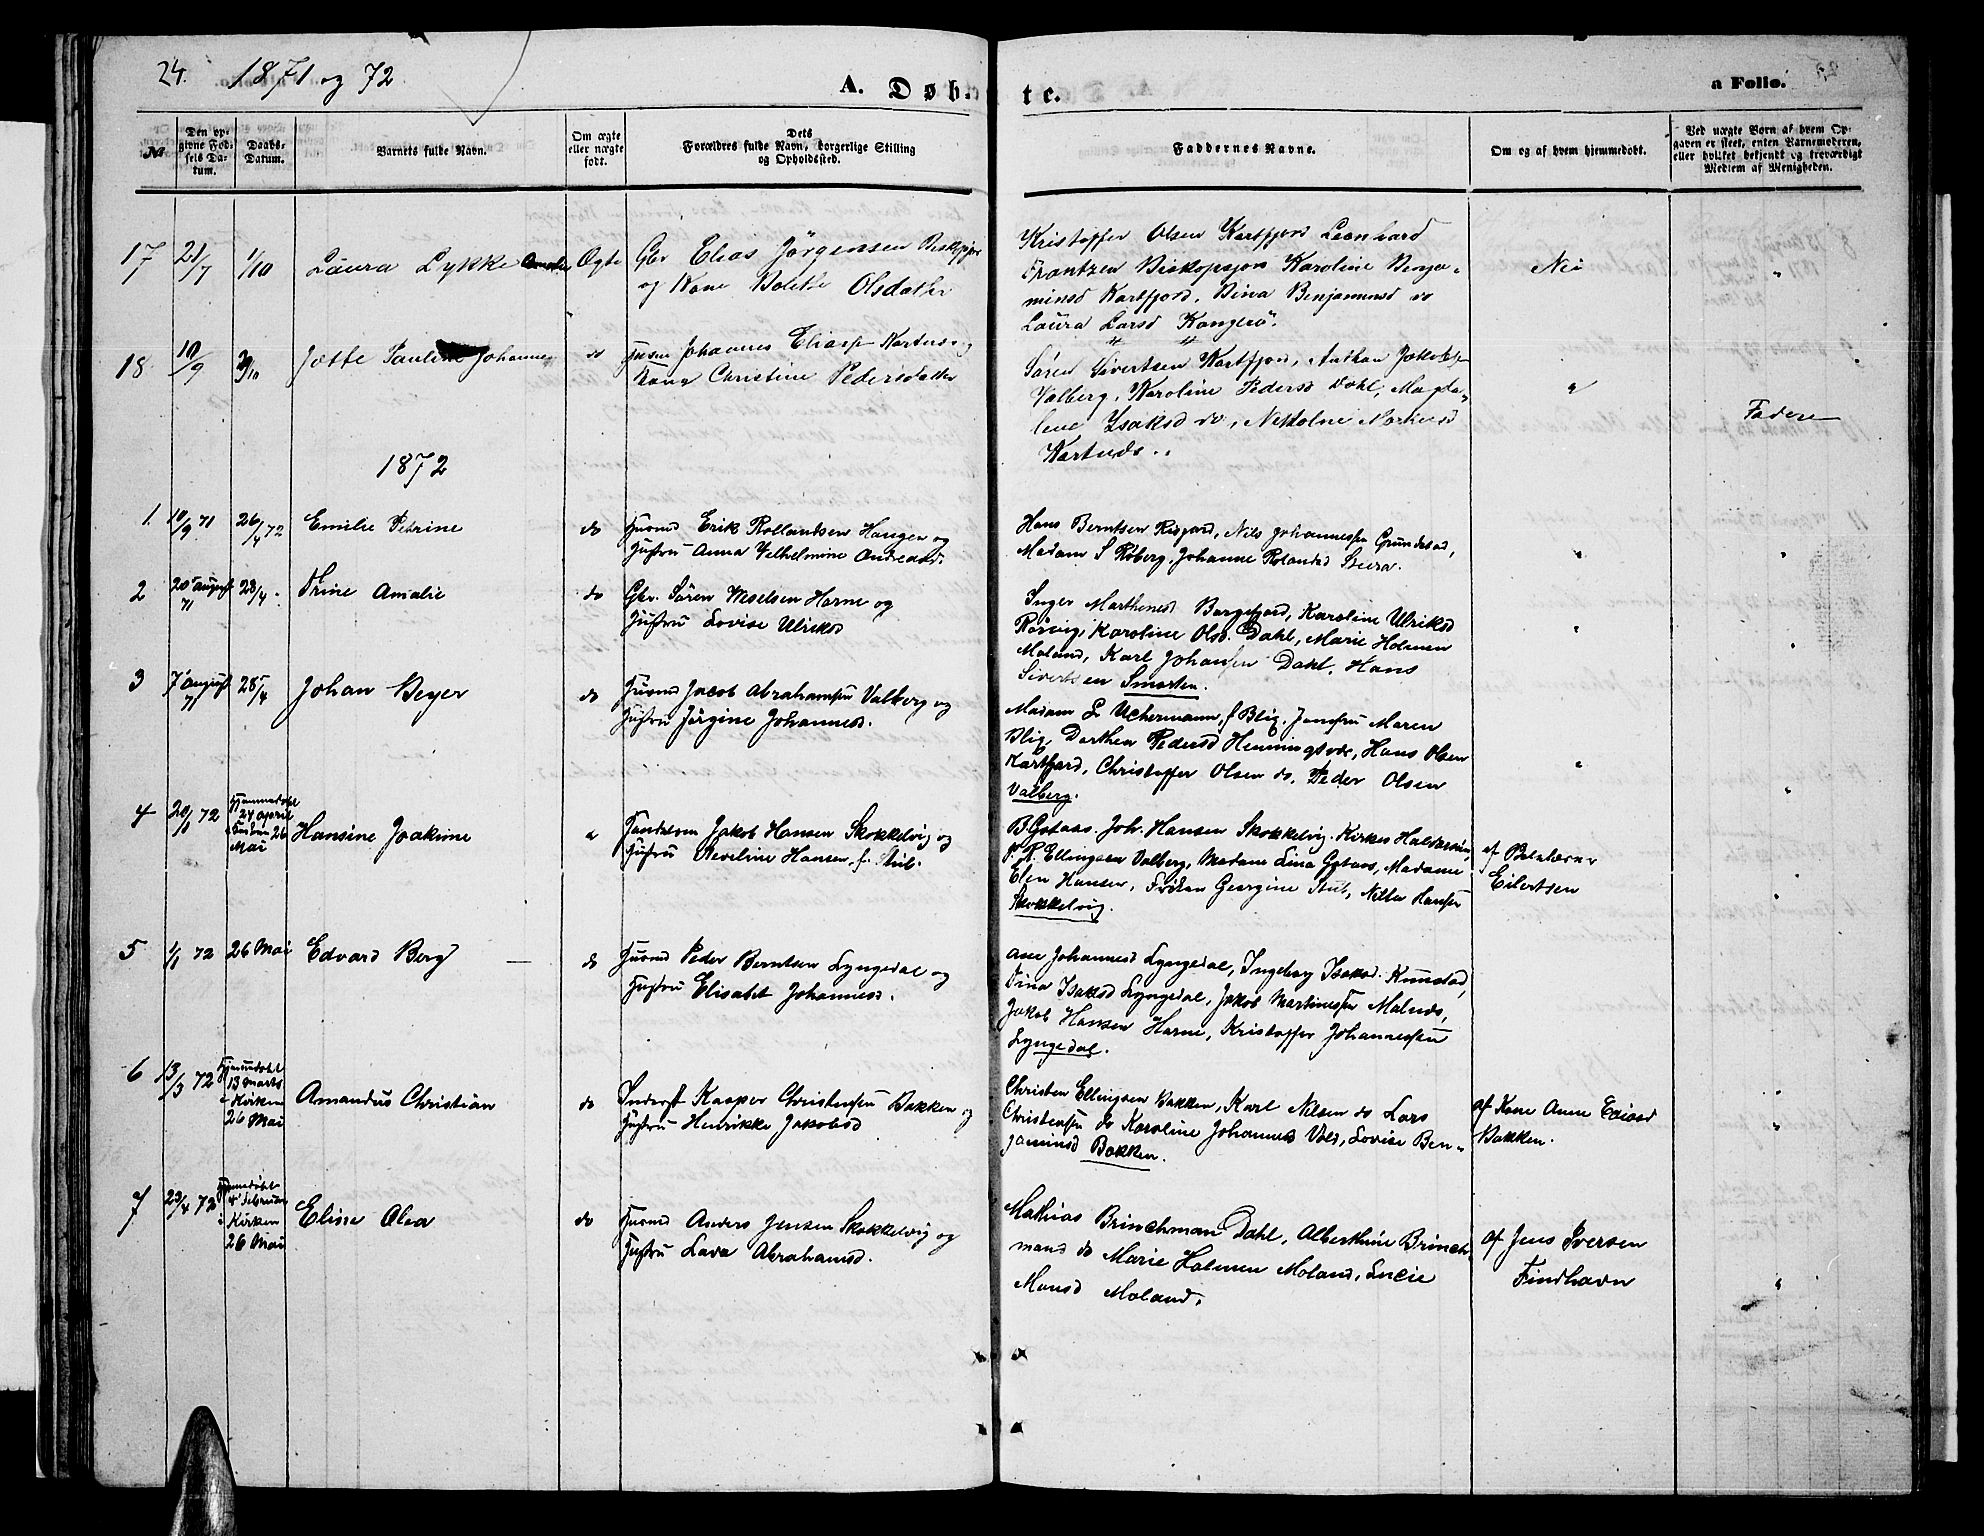 24. 1871 og 72
A. Døbte.
a Folio.
№
Den opgivne Fødsels Datum.
Daabs-Datum.
Barnets fulde Navn.
Om ægte eller uægte født.
Dets Forældres fulde Navn, borgerlige Stilling og Opholdssted.
Faddernes Navne.
Om og af hvem hjemmedøbt.
Ved uægte Børn af hvem Opgaven er skeet, enten Barnemoderen, eller hvilket bekjendt og troværdigt Medlem af Menigheden.
17 21/7 1/10 Laura Lykke Amalie Ægte Gbr Elias Jörgensen Biskopsjor
og Kone Bolette Olsdatter
Kristoffer Olsen Kartfjord Leonhard
Frantzen Biskopsjor Karoline Benja-
minsd Kartfjord, Dina Benjaminsd do
Laura Larsd Kangerö.
Nei "
18 10/9 3/10 Jætte Pauline Johanne do Husm Johannes Eliass Kartnes og
Kone Christine Pedersdatter
Søren Sivertsen Kartfjord, Anthon Jakobsen
Valberg, Karoline Pedersd Dahl, Magda-
lene Isaksd do,
" Faderen
1872
1. 10/9 71 26/4 72 Emilie Petrine do Huusmd Erik Rollandsen Haugen og
Hustru Anna Velhelmine Andreasd.
Hans Berntsen Risfjord, Nils Johannessen Grundstad,
Madam S Röberg, Johanne Rolandsd Steira.
2 20de august 71 28/4. Trine Amalie do Gbr. Søren Weselsen Horne og
Hustru Lovise Ulriksd
Inger Marthinesd Borgefjord, Karoline Ulriksd
Rörvig, Karoline Olsd. Dahl, Marie Holmen
Moland, Karl Johansen Dahl, Hans
Sivertsen Smorten.
3 7de august 71 28/4 Johan Beyer do Huusmd Jacob Abrahamsen Valberg og
Hustru Jörgine Johannesd.
Madam L Uchermann, f Blig. Jomfru Maren
Blig, Dorthea Pedersd Henningsvær, Hans Olsen
Kartfjord, Christoffer Olsen do. Peder Olsen
Valberg.
4 20/1 72 Hjemmedöbt
24 april
i Kirken 26
Mai
Hansine Joakime " Handelsm Jakob Hansen Skokkelvig og
Hustru Aveline Hansen, f. Stub.
B Gstaas. Joh. Hansen Skokkelvig. Kirkes
R. Ellingsen Valberg, Madame Lina Gstaas, Madame
Elen Hansen, Fröken Georgine Stub, Nilla Hansen
Skokkelvig.
af
Eilertsen
5 1/1 72 26 Mai Edvard Berg — do Huusmd Peder Berntsen Lyngedal og
Hustru Elisabet Johannesd.
Ane Johannesd Lyngedal, Ingeborg Isaksd. Kunstad,
Tina Isaksd Lyngedal, Jakob Martinessen Malnes,
Jakob Hansen Horne, Kristoffer Johannessen
Lyngedal.
6 13/3 72 Hjemmedöbt
13 Marts
i Kirken
26 Mai
Amandus Christian do Inderst Kasper Christensen Bakken og
Hustru Henrikke Jakobsd
Christen Ellingsen Bakken, Karl Nilsen do Lars
Christensen do Karoline Johannesd Vold, Lovise Ben-
jaminsd Bakken.
af Kone Anne Eliasd
Bakken.
7 23/4 72 Hjemmedöbt
Februar
i Kirken
26 Mai
Eline Olea do Huusmd Anders Jensen Skokkelvig og
Hustru Lava Abrahamsd.
Mathias Brinchman Dahl, Alberthine Brinch
mand do Marie Holmen Moland, Lucie
Monsd Moland.
af Jens Iversen
Findhavn